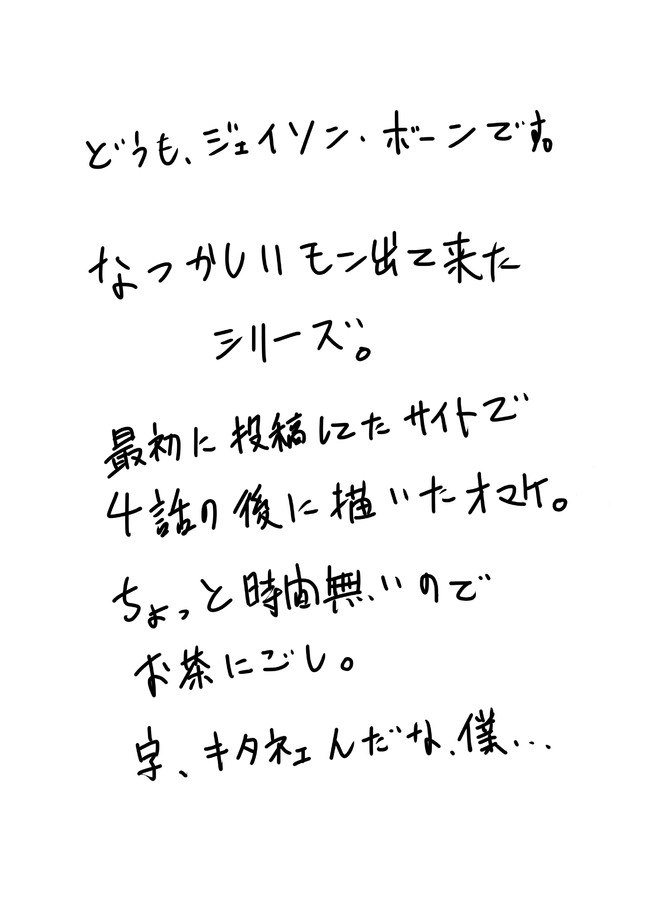 どうも、ジェイソン・ボーンです。
なつかしいモン出て来た
シリーズ。
最初に投稿してたサイトで
4話の後に描いたオマケ。
ちょっと時間無いので
お茶にごし。
字、キタネェんだな、僕...